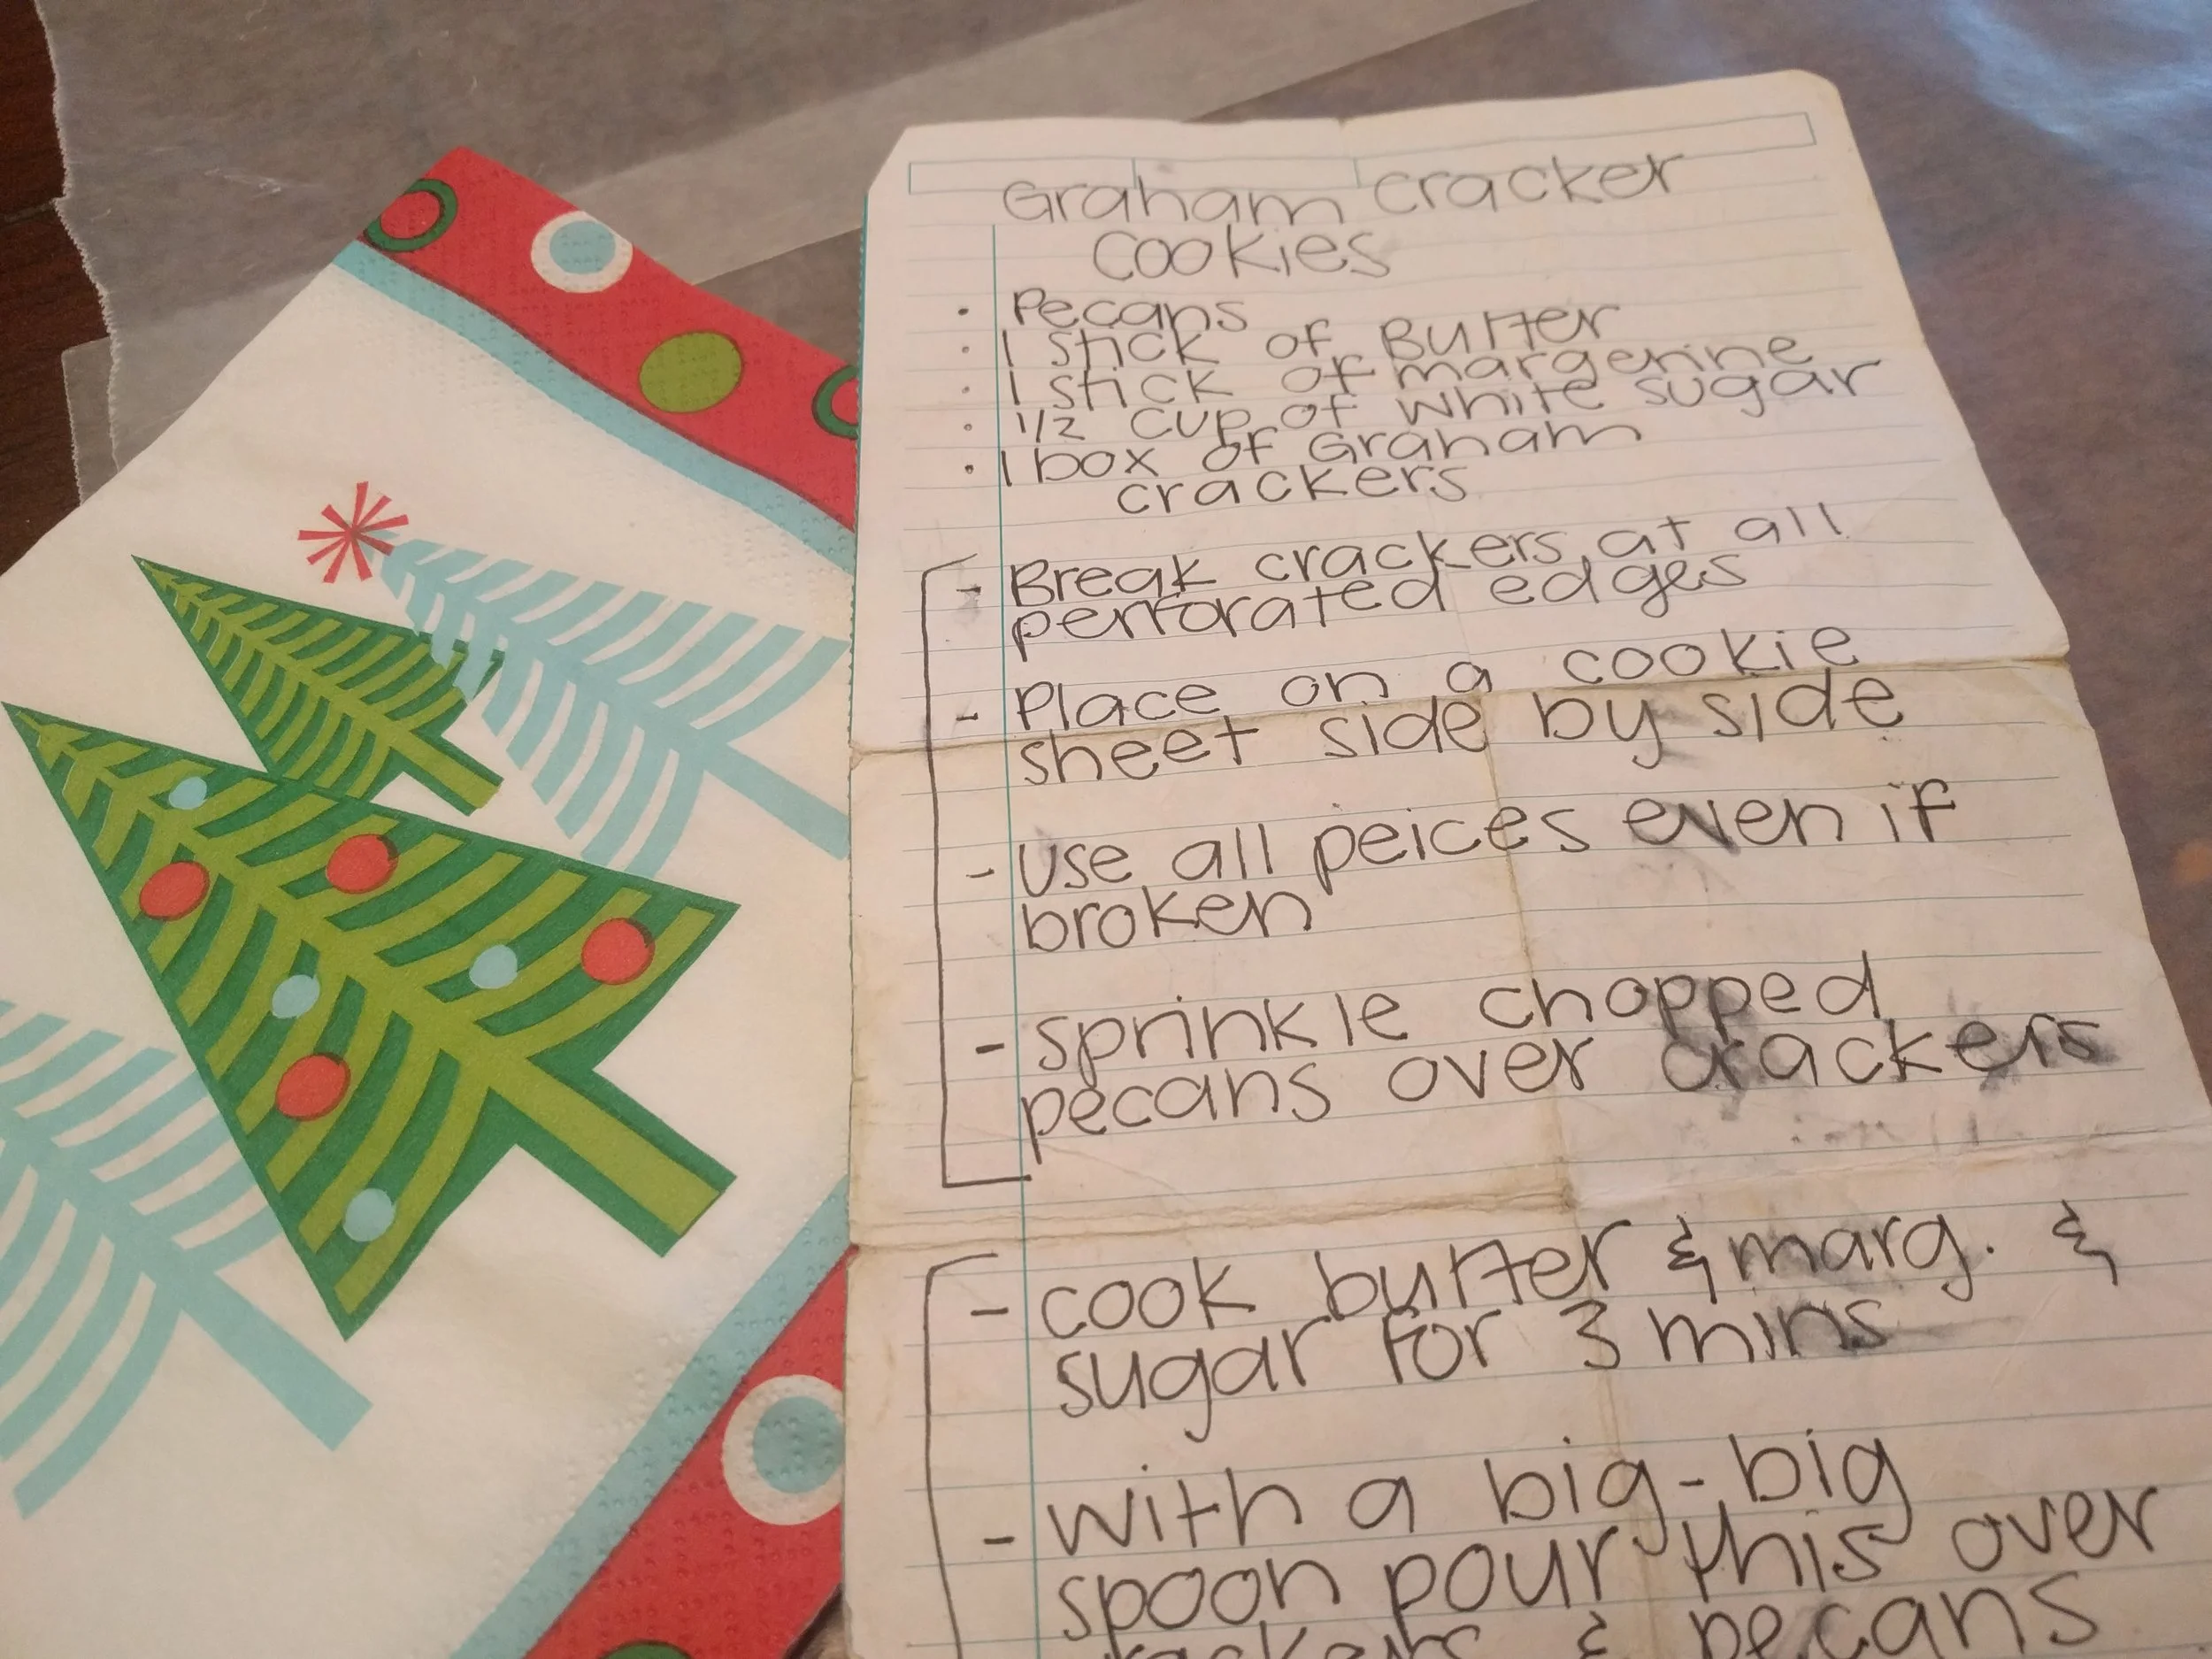 Graham Cracker
Cookies
· Pecans
· 1 stick of Butter
· 1 stick of margerine
· 1/2 cup of white sugar
· 1 box of Graham
crackers
- Break crackers at all
perforated edges
- Place on a cookie
sheet side by side
- Use all peices even if
broken
- sprinkle chopped
pecans over crackers
- cook butter & marg. &
sugar for 3 mins
- with a big-big
spoon pour this over
crackers & pecans